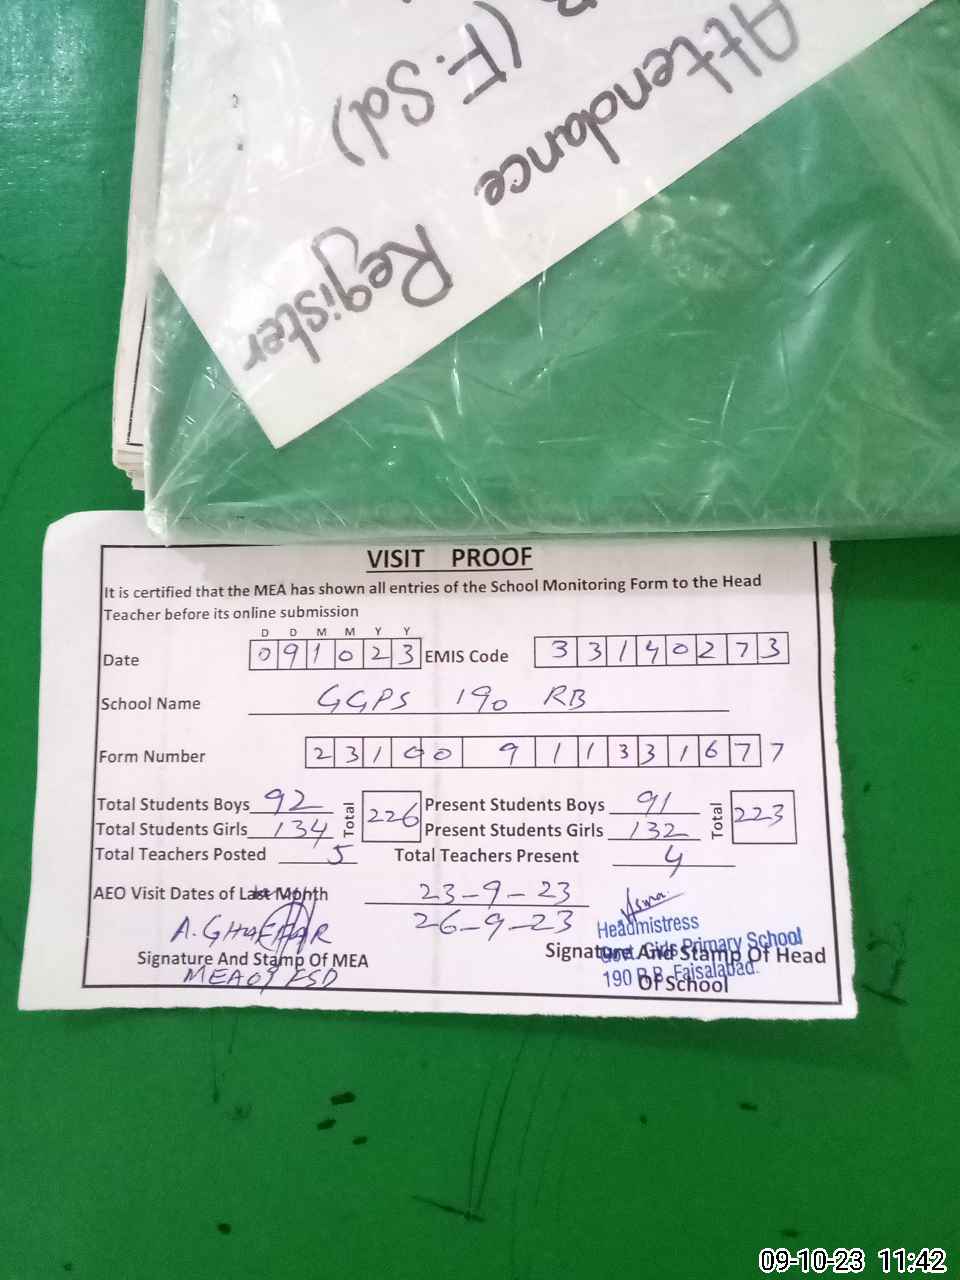 Attendance
Register
(F.Sd)
VISIT PROOF
It is certified that the MEA has shown all entries of the School Monitoring Form to the Head
Teacher before its online submission
D D M M Y Y
Date 0 9 1 0 2 3 EMIS Code 3 3 1 4 0 2 7 3
School Name GGPS 190 RB
Form Number 2 3 1 0 0 9 1 1 3 3 1 6 7 7
Total Students Boys 92 Total 226 Present Students Boys 91 Total 223
Total Students Girls 134 Present Students Girls 132
Total Teachers Posted 5 Total Teachers Present 4
AEO Visit Dates of Last Month 23-9-23
26-9-23
A.GHAFFAR
Asma
Headmistress
Govt. Girls Primary School
190 R.B. Faisalabad.
Signature And Stamp Of MEA
Signature And Stamp Of Head
Of School
MEA09 FSD
09-10-23 11:42